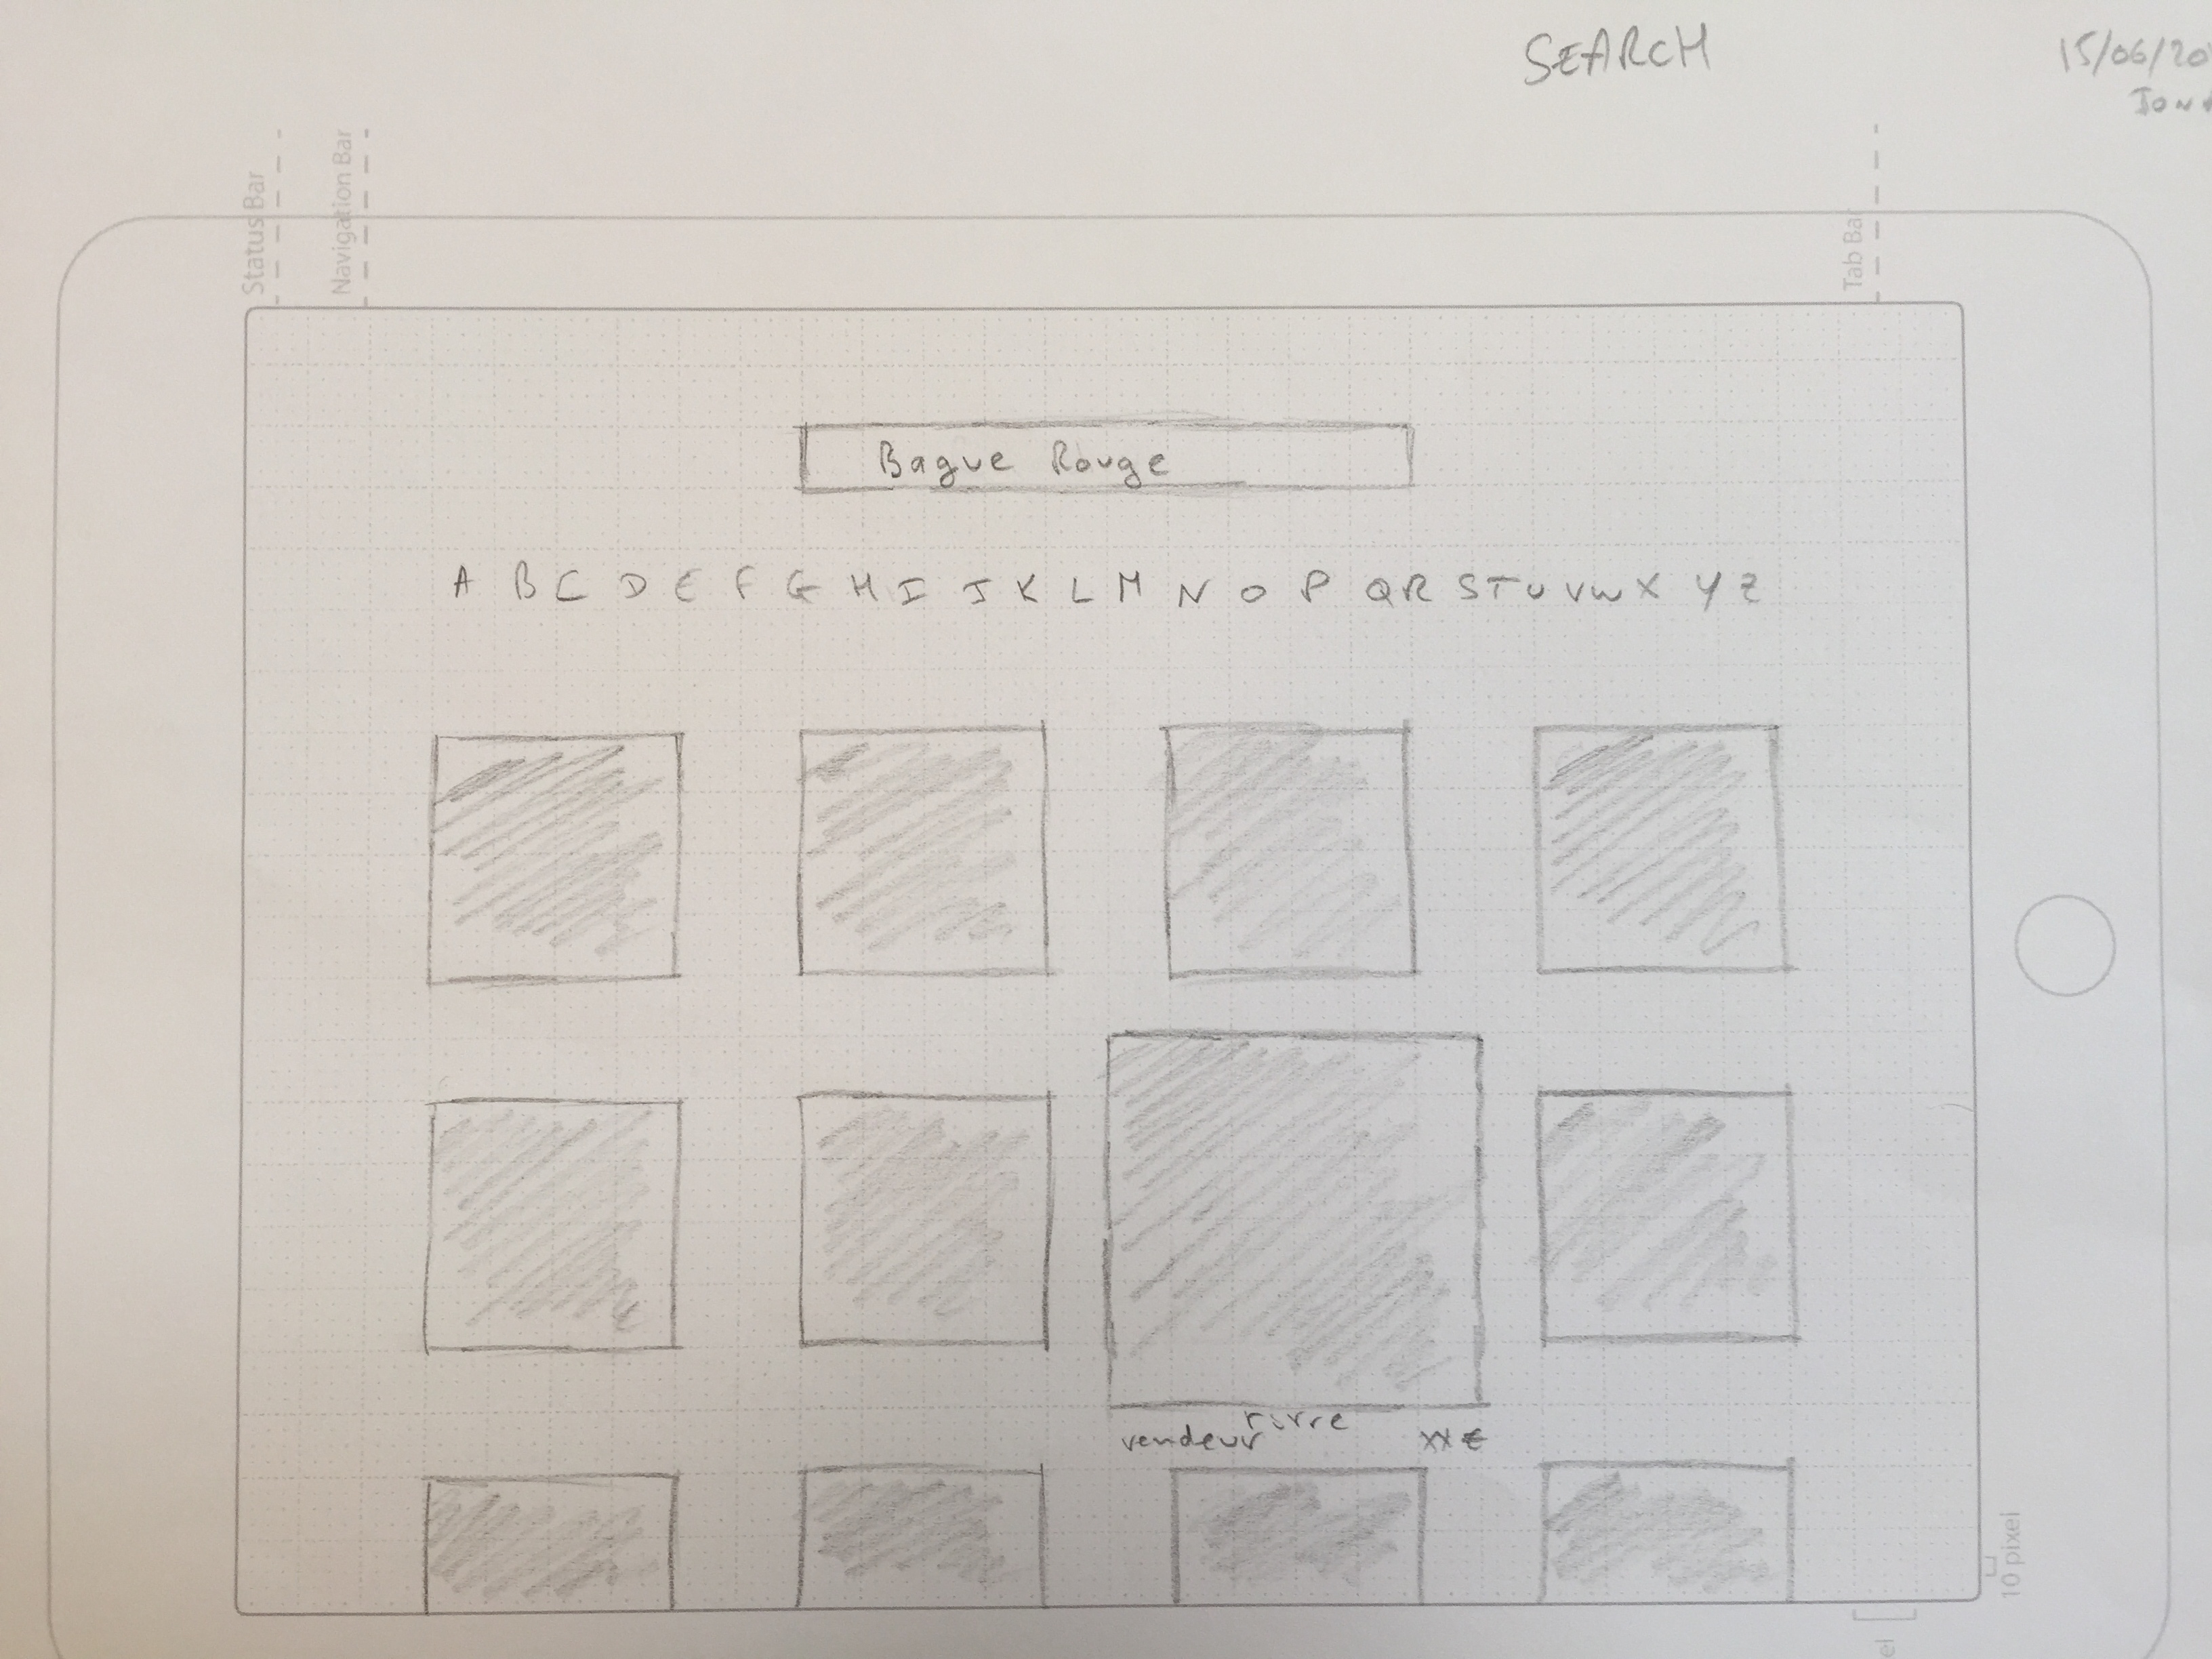 SEARCH
15/06/20
Status Bar
Navigation Bar
Tab Bar
Bague Rouge
A B C D E F G H I J K L M N O P Q R S T U V W X Y Z
vendeur XX €
10 pixel